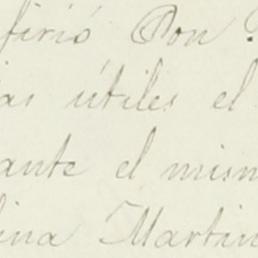 firió Don
ias útiles el
ante el mism
lina Martin